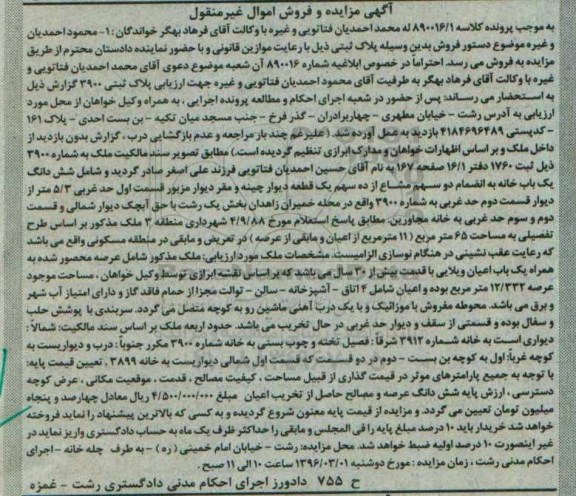 آگهی مزایده و فروش اموال غیرمنقول
به موجب پرونده کلاسه ۸۹۰۰۱۶/۱ له محمد احمدیان فتاتویی و غیره با وکالت آقای فرهاد بهگر خواندگان: ۱- محمود احمدیان
و غیره موضوع دستور فروش بدین وسیله پلاک ثبتی ذیل با رعایت موازین قانونی و با حضور نماینده دادستان محترم از طریق
مزایده به فروش می رسد. احتراماً در خصوص ابلاغیه شماره ۸۹۰۰۱۶ آن شعبه موضوع دعوی آقای محمد احمدیان فتاتویی و
غیره با وکالت آقای فرهاد بهگر به طرفیت آقای محمود احمدیان فتاتویی و غیره جهت ارزیابی پلاک ثبتی ۳۹۰۰ گزارش ذیل
به استحضار می رساند: پس از حضور در شعبه اجرای احکام و مطالعه پرونده اجرایی، به همراه وکیل خواهان از محل مورد
ارزیابی به آدرس رشت - خیابان مطهری - چهاربرادران - گذر فرخ - جنب مسجد میان تکیه - بن بست احدی - پلاک ۱۶۱
- کدپستی ۴۱۸۴۶۹۶۴۸۹ بازدید به عمل آورده شد. (علیرغم چند بار مراجعه و عدم بازگشایی درب، گزارش بدون بازدید از
داخل ملک و بر اساس اظهارات خواهان و مدارک ابرازی تنظیم گردیده است.) مطابق تصویر سند مالکیت ملک به شماره ۳۹۰۰
ذیل ثبت ۱۷۶۰ دفتر ۱۶/۱ صفحه ۱۶۷ به نام آقای حسین احمدیان فتاتویی فرزند علی اصغر صادر گردید و شامل شش دانگ
یک باب خانه به انضمام دو سهم مشاع از ده سهم یک قطعه دیوار چینه و مقر دیوار مزبور قسمت اول حد غربی ۵/۳ متر از
دیوار قسمت دوم حد غربی به شماره ۳۹۰۰ واقع در محله خمیران زاهدان بخش یک رشت با حق آبچک دیوار شمالی و قسمت
دوم و سوم حد غربی به خانه مجاورین. مطابق پاسخ استعلام مورخ ۴/۹/۸۸ شهرداری منطقه ۳ ملک مذکور بر اساس طرح
تفصیلی به مساحت ۶۵ متر مربع (۱۱ مترمربع از اعیان و مابقی از عرصه) در تعریض و مابقی در منطقه مسکونی واقع می باشد
که رعایت عقب نشینی در هنگام نوسازی الزامیست. مشخصات ملک مورد ارزیابی: ملک مذکور شامل عرصه محصور شده به
همراه یک باب اعیان ویلایی با قدمت بیش از ۳۰ سال می باشد که بر اساس نقشه ابرازی توسط وکیل خواهان، مساحت موجود
عرصه ۱۲/۳۳۲ متر مربع بوده و اعیان شامل ۴ اتاق - آشپزخانه - سالن - توالت مجزا از حمام فاقد گاز و دارای امتیاز آب شهر
و برق می باشد. محوطه مفروش با موزائیک و با یک درب آهنی ماشین رو به کوچه متصل می گردد. سربندی با پوشش حلب
و سفال بوده و قسمتی از سقف و دیوار حد غربی در حال تخریب می باشد. حدود اربعه ملک بر اساس سند مالکیت: شمالاً:
دیواری است به خانه شماره ۳۹۱۲ شرقاً: فصیل تخته و چوب بستی به خانه شماره ۳۹۰۰ مکرر جنوباً: درب و دیواریست به
کوچه غرباً: اول به کوچه بن بست - دوم در دو قسمت که قسمت اول شمالی دیواریست به خانه ۳۸۹۹. تعیین قیمت پایه:
با توجه به جمیع پارامترهای موثر در قیمت گذاری از قبیل مساحت، کیفیت مصالح، قدمت، موقعیت مکانی، عرض کوچه
دسترسی، ارزش پایه شش دانگ عرصه و مصالح حاصل از تخریب اعیان مبلغ ۴/۵۰۰/۰۰۰/۰۰۰ ریال معادل چهارصد و پنجاه
میلیون تومان تعیین می گردد. و مزایده از قیمت پایه معنون شروع گردیده و به کسی که بالاترین پیشنهاد را نماید فروخته
خواهد شد خریدار باید ۱۰ درصد مبلغ پایه را فی المجلس و مابقی را حداکثر ظرف یک ماه به حساب دادگستری واریز نماید در
غیر اینصورت ۱۰ درصد اولیه ضبط خواهد شد. محل مزایده: رشت - خیابان امام خمینی (ره) - به طرف چله خانه - اجرای
احکام مدنی رشت، زمان مزایده: مورخ دوشنبه ۱۳۹۶/۰۳/۰۱ ساعت ۱۰ الی ۱۱ صبح.
ح ۷۵۵ دادورز اجرای احکام مدنی دادگستری رشت - غمزه